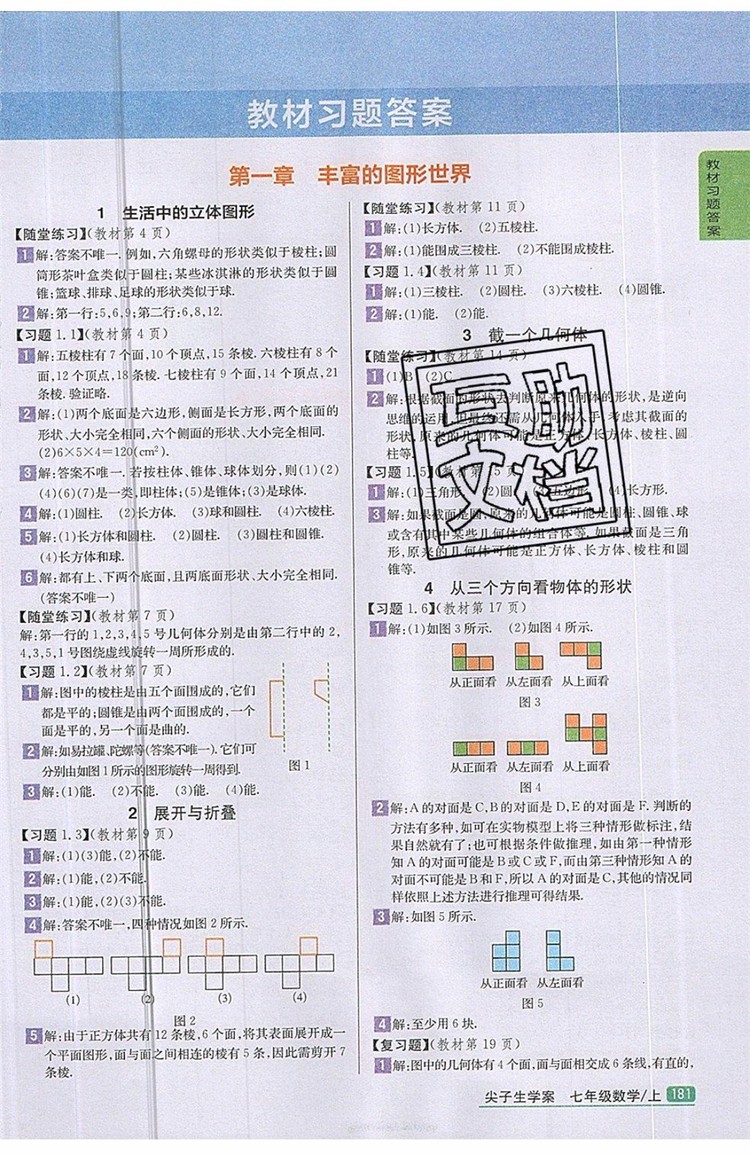 教材习题答案
第一章 丰富的图形世界
教材习题答案
1 生活中的立体图形
【随堂练习】(教材第4页)
1 解:答案不唯一.例如,六角螺母的形状类似于棱柱;圆
筒形茶叶盒类似于圆柱;某些冰淇淋的形状类似于圆
锥;篮球、排球、足球的形状类似于球.
2 解:第一行:5,6,9;第二行:6,8,12.
【习题1.1】(教材第4页)
1 解:五棱柱有7个面,10个顶点,15条棱.六棱柱有8个
面,12个顶点,18条棱.七棱柱有9个面,14个顶点,21
条棱.验证略.
2 解:(1)两个底面是六边形,侧面是长方形,两个底面的
形状、大小完全相同,六个侧面的形状、大小完全相同.
(2)6×5×4=120(cm²).
3 解:答案不唯一.若按柱体、锥体、球体划分,则(1)(2)
(4)(6)(7)是一类,即柱体;(5)是锥体;(3)是球体.
4 解:(1)圆柱. (2)长方体. (3)球和圆柱. (4)六棱柱.
5 解:(1)长方体和圆柱. (2)圆柱. (3)圆柱和圆锥.
(4)长方体和球.
6 解:都有上、下两个底面,且两底面形状、大小完全相同.
(答案不唯一)
【随堂练习】(教材第7页)
解:第一行的1,2,3,4,5号几何体分别是由第二行中的2,
4,3,5,1号图绕虚线旋转一周所形成的.
【习题1.2】(教材第7页)
1 解:图中的棱柱是由五个面围成的,它们
都是平的;圆锥是由两个面围成的,一个
面是平的,另一个面是曲的.
2 解:如易拉罐、陀螺等(答案不唯一).它们可
分别由如图1所示的图形旋转一周得到.
图1
3 解:(1)能. (2)不能. (3)能. (4)能.
2 展开与折叠
【习题1.3】(教材第9页)
1 解:(1)(3)能,(2)不能.
2 解:(1)能,(2)不能.
3 解:(1)能,(2)(3)不能.
4 解:答案不唯一,四种情况如图2所示.
(1) (2) (3) (4)
图2
5 解:由于正方体共有12条棱,6个面,将其表面展开成一
个平面图形,面与面之间相连的棱有5条,因此需剪开7
条棱.
【随堂练习】(教材第11页)
1 解:(1)长方体. (2)五棱柱.
2 解:(1)能围成三棱柱. (2)不能围成棱柱.
【习题1.4】(教材第11页)
1 解:(1)三棱柱. (2)圆柱. (3)六棱柱. (4)圆锥.
2 解:(1)能. (2)能.
3 截一个几何体
【随堂练习】(教材第14页)
1 (1)B (2)C
2 解:根据截面的形状去判断原来几何体的形状,是逆向
思维的运用,但最终还需从几何体入手,考虑其截面的
形状,原来的几何体可能是正方体、长方体、棱柱、圆
柱等.
【习题1.5】(教材第15页)
1 解:(1)三角形. (2)圆. (3)五边形. (4)长方形.
3 解:如果截面是圆,原来的几何体可能是圆柱、圆锥、球
或含有其中某些几何体的组合体等.如果截面是三角
形,原来的几何体可能是正方体、长方体、棱柱和圆
锥等.
互助
文档
4 从三个方向看物体的形状
【习题1.6】(教材第17页)
1 解:(1)如图3所示. (2)如图4所示.
从正面看 从左面看 从上面看
图3
从正面看 从左面看 从上面看
图4
2 解:A的对面是C,B的对面是D,E的对面是F.判断的
方法有多种,如可在实物模型上将三种情形做标注,结
果自然就有了;也可根据条件做推理,如由第一种情形
知A的对面可能是B或C或F,而由第三种情形知A的
对面不可能是B和F,所以A的对面是C,其他的情况同
样依照上述方法进行推理可得结果.
3 解:如图5所示.
从正面看 从左面看
图5
4 解:至少用6块.
【复习题】(教材第19页)
1 解:图中的几何体有4个面,面与面相交成6条线,有直的,
尖子生学案 七年级数学/上 181